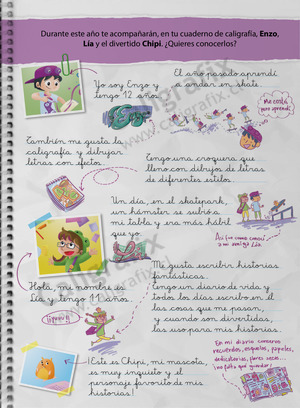 Durante este año te acompañarán, en tu cuaderno de caligrafía, Enzo,
Lía y el divertido Chipi. ¿Quieres conocerlos?
Yo soy Enzo y
tengo 12 años.
El año pasado aprendí
a andar en skate.
Me costó
pero aprendí
También me gusta la
caligrafía y dibujar
letras con efectos.
Tengo una croquera que
lleno con dibujos de letras
de diferentes estilos.
Un día, en el skatepark,
un hámster se subió a
mi tabla y era más hábil
que yo.
Así fue como conocí
a mi amiga Lía.
Hola, mi nombre es
Lía y tengo 11 años.
Me gusta escribir historias
fantásticas.
Tengo un diario de vida y
todos los días escribo en él
las cosas que me pasan,
y cuando son divertidas,
las uso para mis historias.
¡Este es Chipi, mi mascota,
es muy inquieto y el
personaje favorito de mis
historias!
En mi diario conservo
recuerdos,
dedicatorias, flores secas...
www.caligrafix.cl